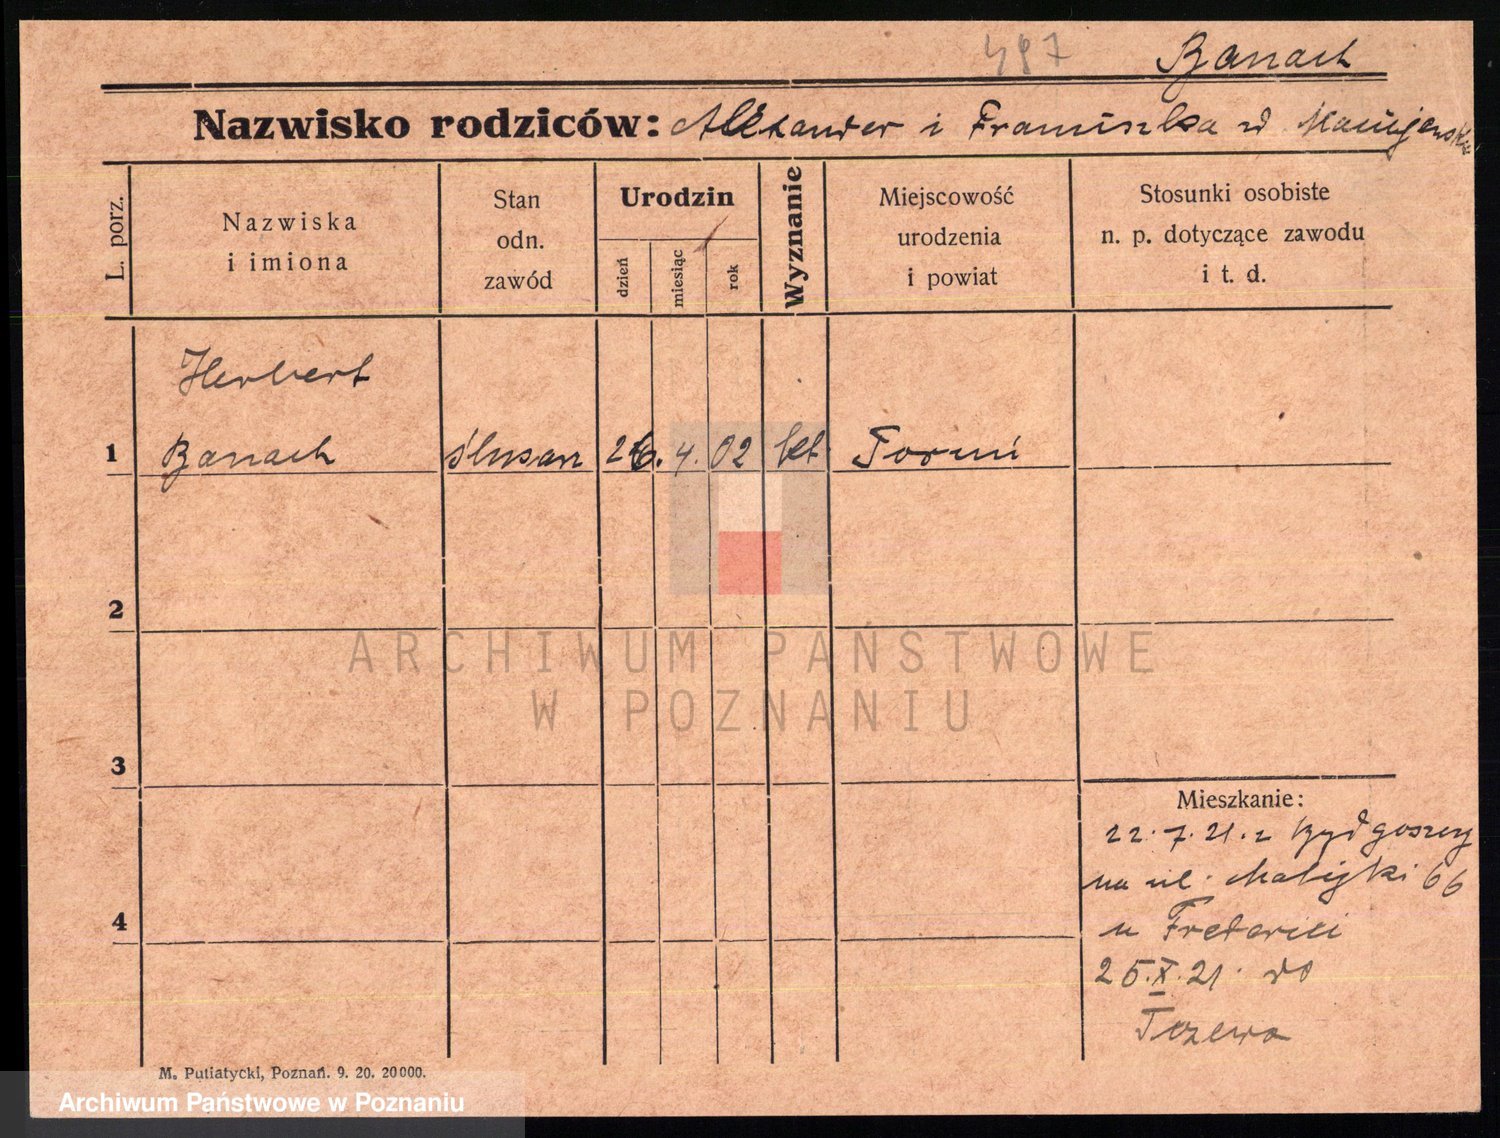 487
Banach
Nazwisko rodziców: Alexander i Franiszka zd
L. porz.
Nazwiska
i imiona
Stan
odn.
zawód
Urodzin
dzień
miesiąc
rok
Wyznanie
Miejscowość
urodzenia
i powiat
Stosunki osobiste
n. p. dotyczące zawodu
i t. d.
Herbert
1 Banach ślusarz 26. 4. 02 kat. Toruń
2
ARCHIWUM PAŃSTWOWE
W POZNANIU
3
Mieszkanie:
22.7.21. z Bydgoszczy
na ul. Małecki 66
u
4
25.X.21. do
Tczewa
M. Putiatycki, Poznań. 9. 20. 20000.
Archiwum Państwowe w Poznaniu